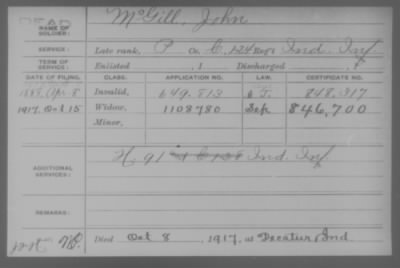 DEAD
NAME OF SOLDIER: McGill, John
SERVICE: Late rank, P Co. C, 124 Reg't Ind. Inf.
TERM OF SERVICE: Enlisted , 1 Discharged , 1
DATE OF FILING. CLASS. APPLICATION NO. LAW. CERTIFICATE NO.
Apr 8 Invalid, 649,813 848,317
1917. Oct 15 Widow, 1108780 Sep 846,700
Minor,
ADDITIONAL SERVICES: H, 91 Ind. Inf.
REMARKS:
Died Oct 8, 1917, at Decatur, Ind